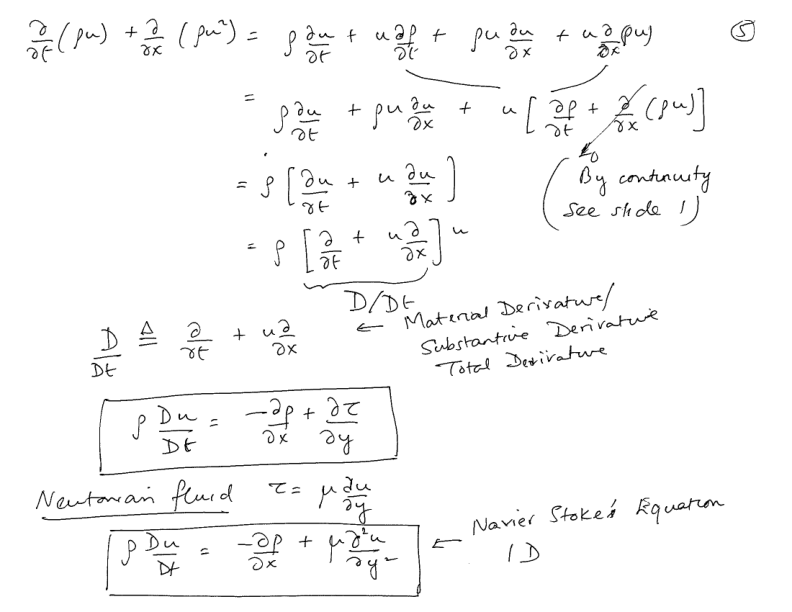 ∂/∂t (ρu) + ∂/∂x (ρu²) = ρ ∂u/∂t + u ∂ρ/∂t + ρu ∂u/∂x + u ∂/∂x ρu) ⑤
= ρ ∂u/∂t + ρu ∂u/∂x + u [ ∂ρ/∂t + ∂/∂x (ρu) ]
= ρ [ ∂u/∂t + u ∂u/∂x ]
0
( By continuity
see slide 1 )
= ρ [ ∂/∂t + u ∂/∂x ] u
D/Dt
D/Dt ≜ ∂/∂t + u ∂/∂x ← Material Derivative/
Substantive Derivative
Total Derivative
ρ Du/Dt = -∂p/∂x + ∂τ/∂y
Newtonian fluid τ = μ ∂u/∂y
ρ Du/Dt = -∂p/∂x + μ ∂²u/∂y² ← Navier Stoke's Equation
1D